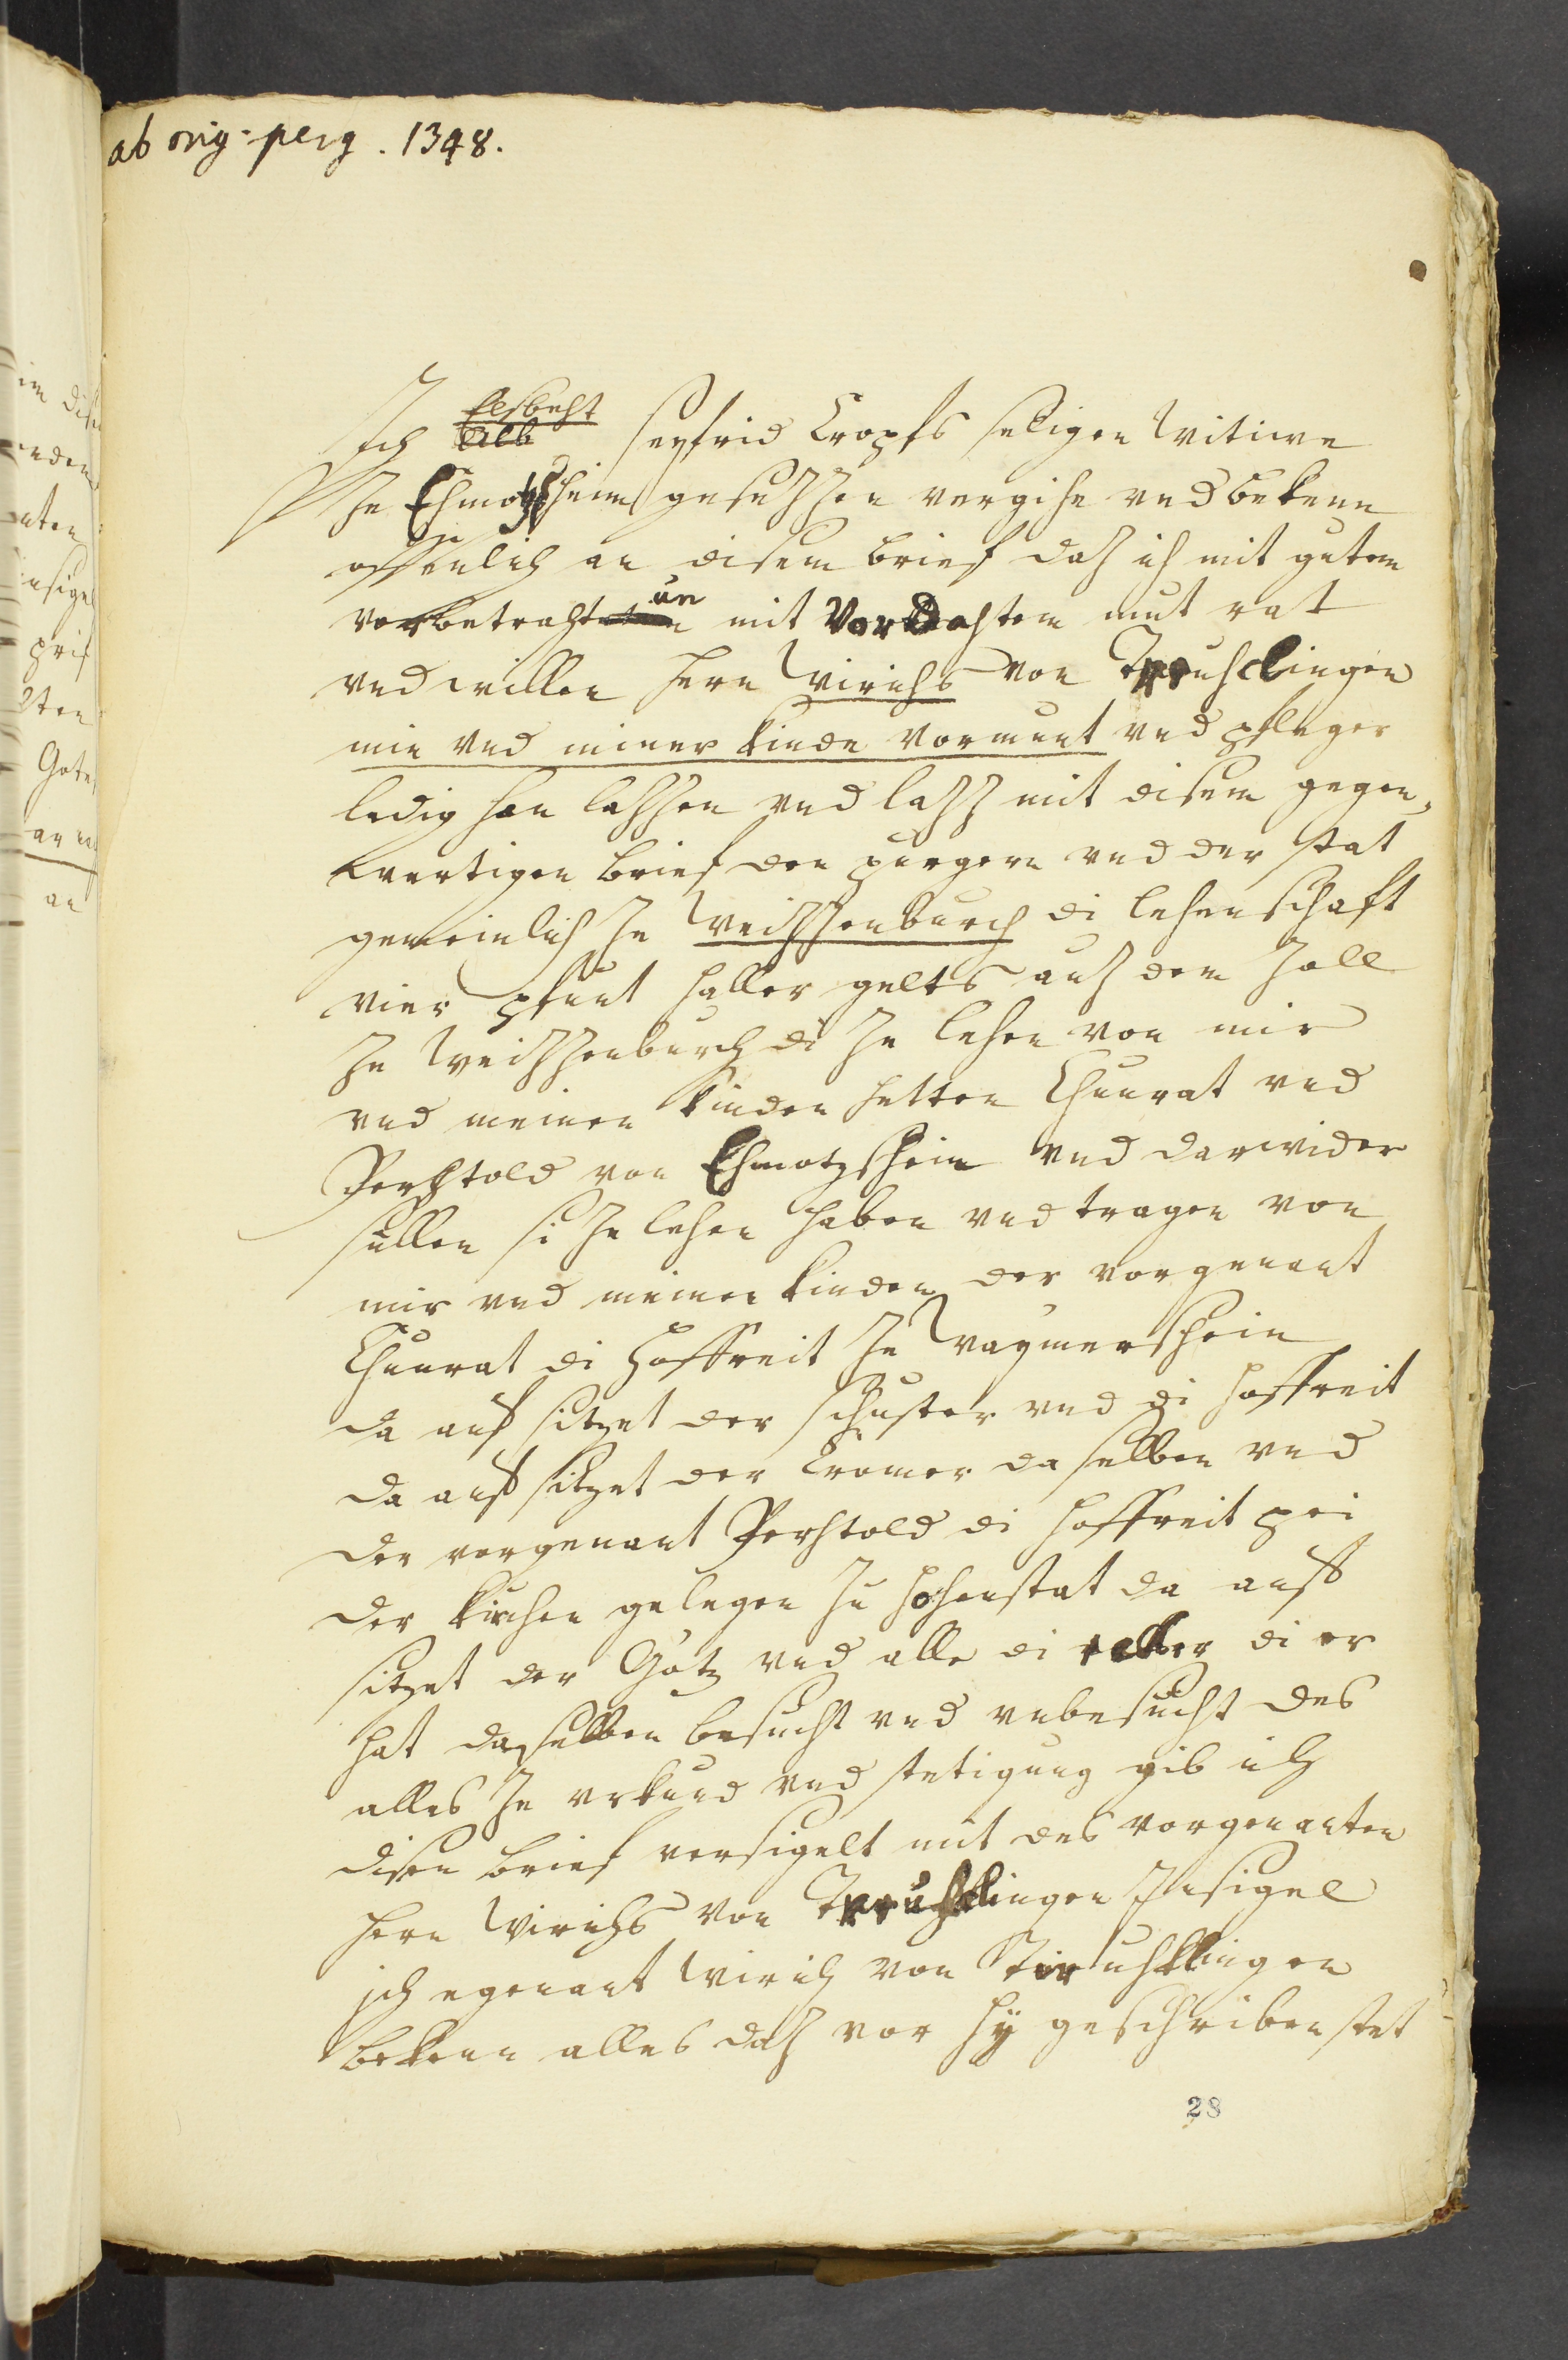 ab orig: perg. 1348.
Elsbeht
Ich Seyfrid Cropfs seligen witiwe
ze Ehmotzsheim gesezzen vergihe vnd bekenn
offenlich an disem brief daz ich mit gutem
un
vorbetracht mit Vordahtem mut rat
vnd willen hern Wirichs von Truhclingen
min vnd miner kinde vormunt vnd pfleger
ledig han lazzen vnd lazz mit disem gegen,
wertigen brief den purgern vnd der stat
gemeinlich ze Weizzenburch di lehenschaft
vier pfunt haller gelts auz dem Zoll
ze Weizzenburch di ze lehen von mir
vnd meinen kinden hetten Chunrat vnd
Perhtold von Ehmotzshein vnd darwider
sullen si ze lehen haben vnd tragen von
mir vnd meinen kinden der vorgenant
Chunrat di hoffreit ze Waymershein
da auf sitzet der schuster vnd di hoffreit
da auff sitzet der Cromer da selben vnd
der vorgenant Perhtold di hoffreit pei
der kirchen gelegen zu Hohenstat da auff
sitzet der Götz vnd alle di ekker di er
hat daselben besucht vnd vnbesucht des
alles ze vrkund vnd stetigung gib ich
disen brief versigelt mit des vorgenanten
hern Wirichs von Truhclingen Insigel
ich egenant Wirich von Truhclingen
bekenn alles daz vor hy geschriben stet
28